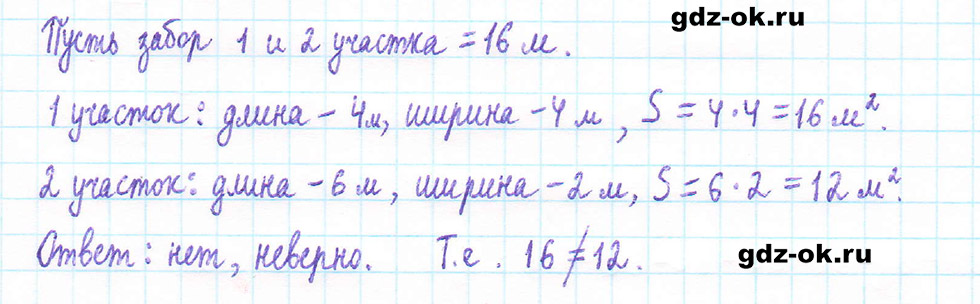 gdz-ok.ru
Пусть забор 1 и 2 участка = 16 м.
1 участок: длина - 4м, ширина - 4 м, S = 4·4 = 16 м².
2 участок: длина - 6 м, ширина - 2 м, S = 6·2 = 12 м².
Ответ: нет, неверно. Т.е. 16 ≠ 12.
gdz-ok.ru